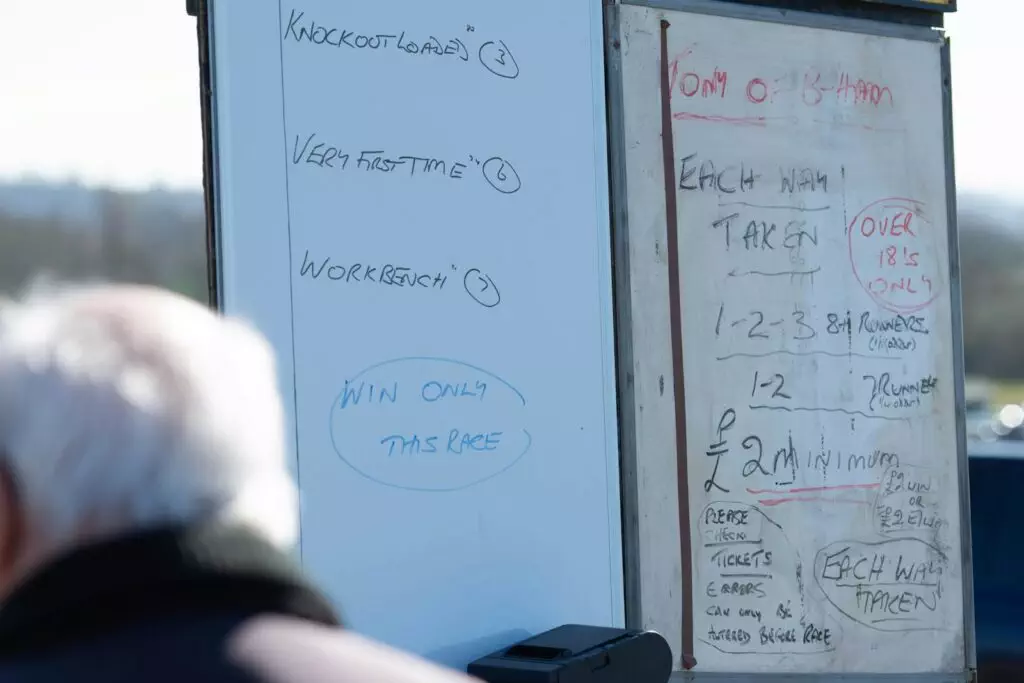 KNOCKOUT LOADED" 3
VERY FIRST TIME" 6
WORKBENCH" 7
WIN ONLY
THIS RACE
TONY OF B-HAM
EACH WAY
TAKEN
OVER
18'S
ONLY
1-2-3 8+ RUNNERS
1-2 7 RUNNERS
£2 MINIMUM
£2 WIN
OR
£2 E/W
PLEASE
CHECK
TICKETS
ERRORS
CAN ONLY BE
ALTERED BEFORE RACE
EACH WAY
TAKEN